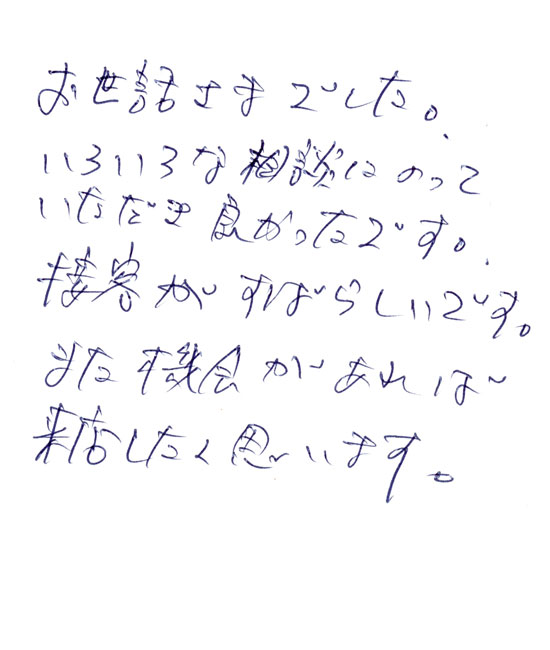 お世話さまでした。
いろいろな相談にのって
いただき良かったです。
接客がすばらしいです。
また機会があれば
来店したく思います。